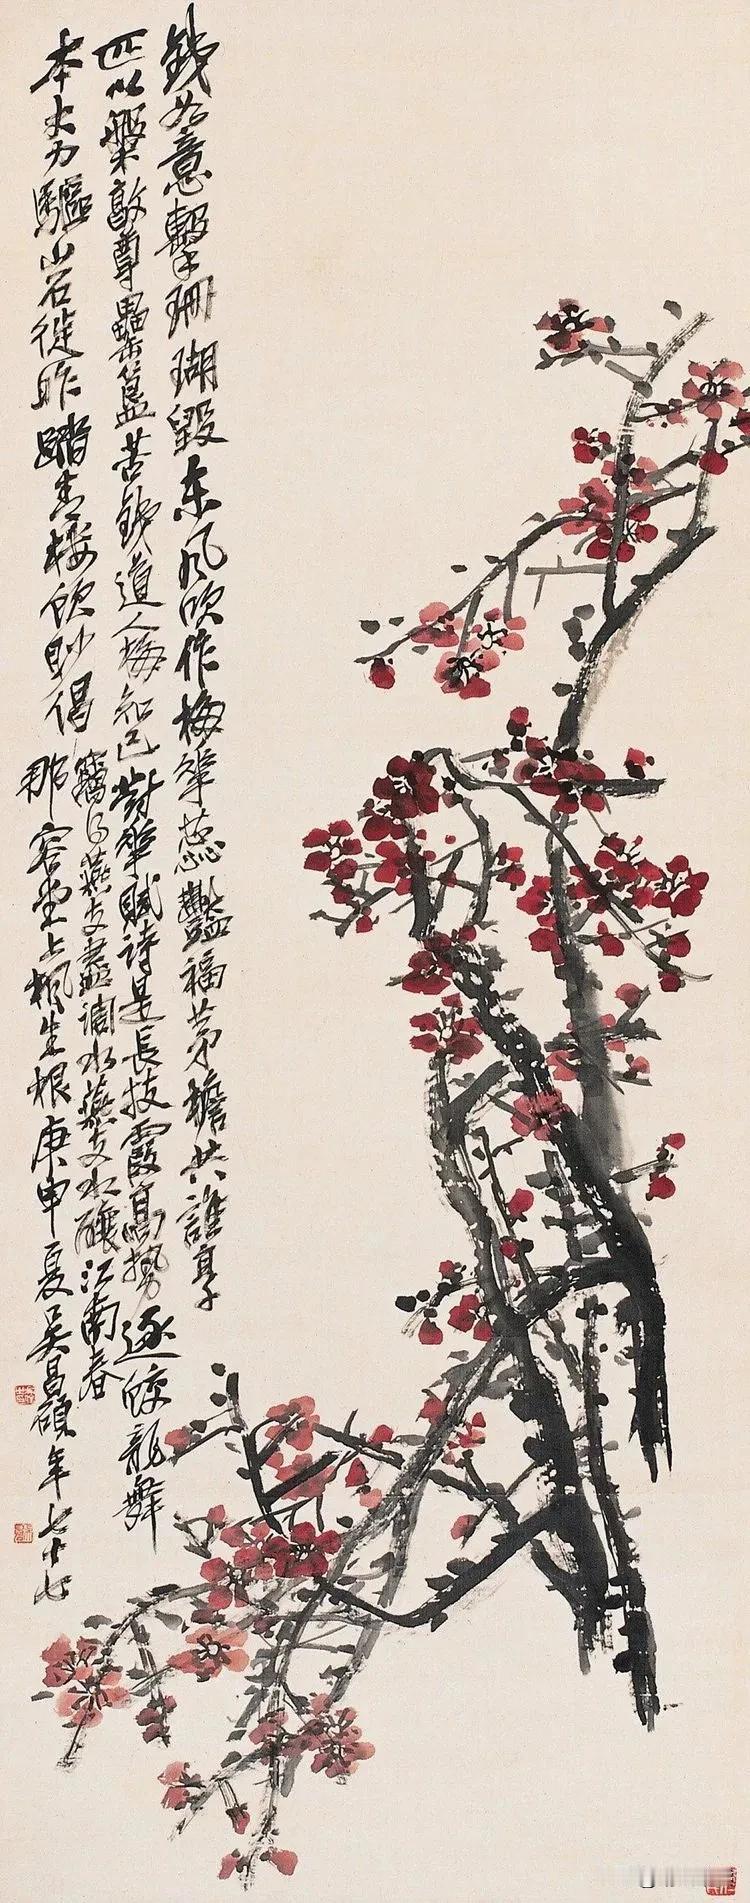 銕如意擊珊瑚毀東風吹作梅華蕊豔福茅檐共誰享
匹以槃敦尊罍簋苦銕道人梅知己對華賦詩是長技霞高勢逐蛟龍舞
本大力驅山石徙昨踏青樓飲眇倡
竊得燕支盡調水燕支水釀江南春
那容堂上楓生根庚申夏吳昌碩年七十七